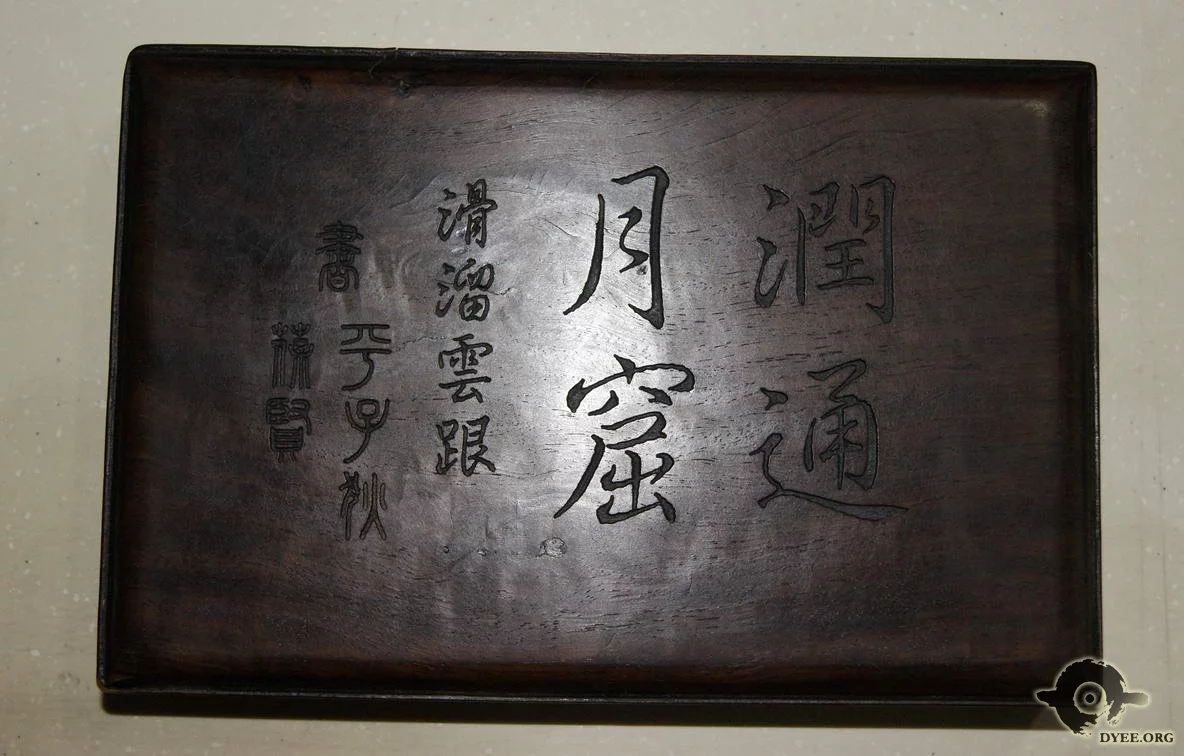 潤通
月窟
滑溜雲跟
書
平子狄
葆賢
DYEE.ORG